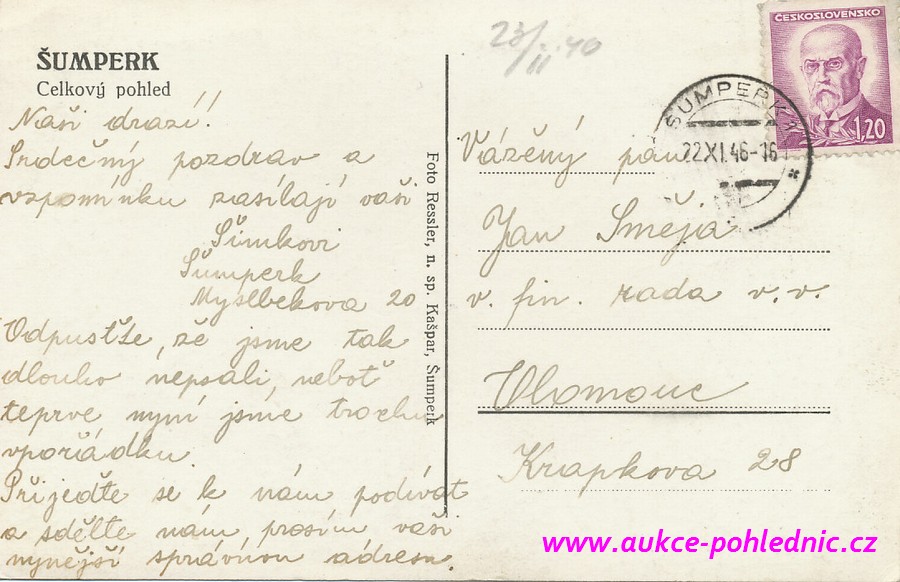 ŠUMPERK
Celkový pohled
Naši drazí!!
Srdečný pozdrav a
vzpomínku zasílají vaši
Šimkovi
Šumperk
Myslbekova 20
Odpusťte, že jsme tak
dlouho nepsali, neboť
teprve nyní jsme trochu
vpořádku.
Přijeďte se k nám podívat
a sdělte nám prosím vaši
nynější správnou adresu.
Foto Ressler, n. sp. Kašpar, Šumperk
23/11 40
ČESKOSLOVENSKO
1,20
ŠUMPERK 1
22.XI.46-16
Vážený pan
Jan Směja
v. fin. rada v. v.
Olomouc
Krapkova 28
www.aukce-pohlednic.cz